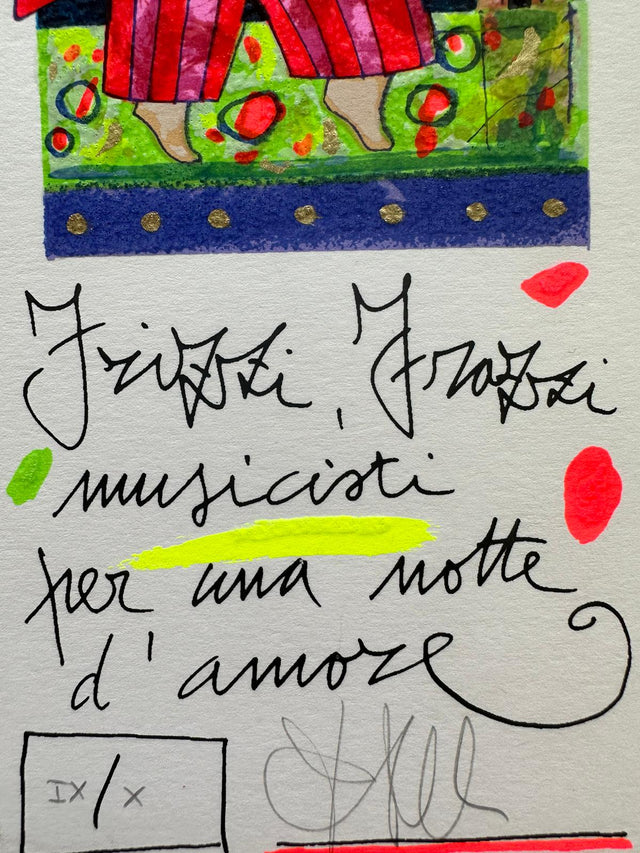 Frizzi, Frazzi
musicisti
per una notte
d'amore
IX/X